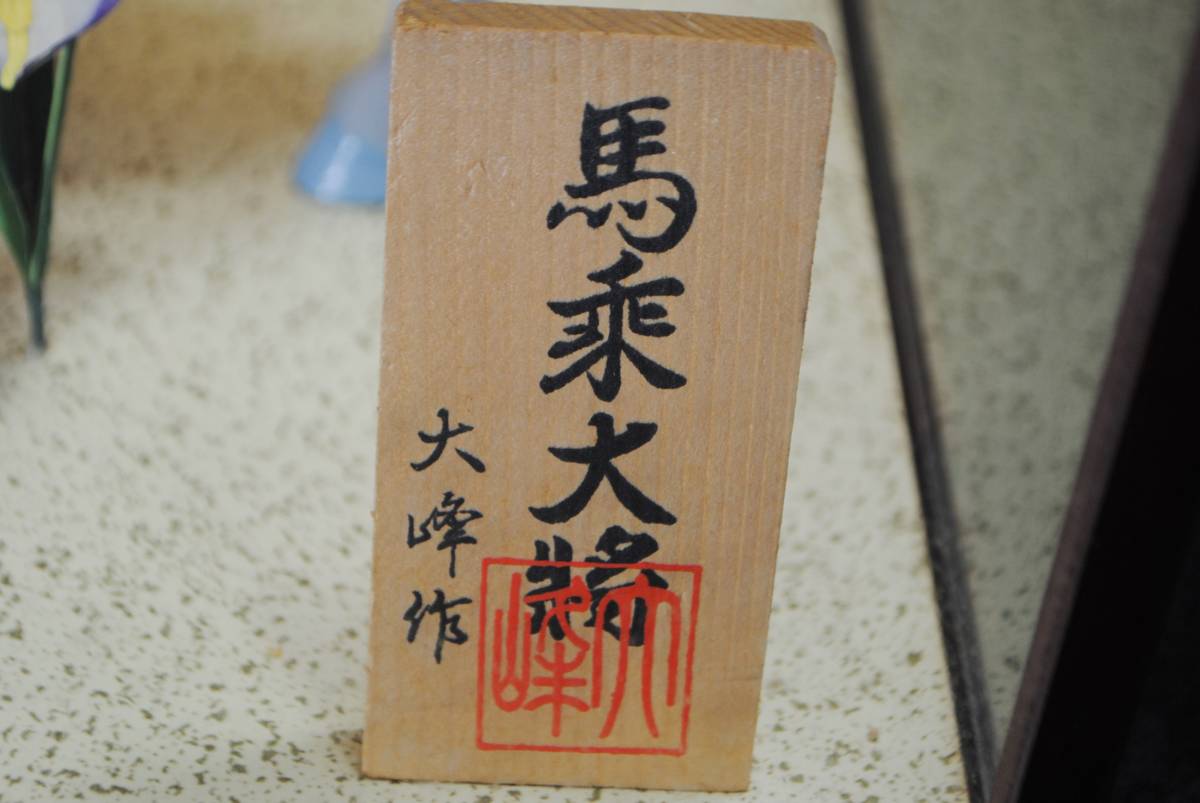 馬乘大将
大峰作
大峰